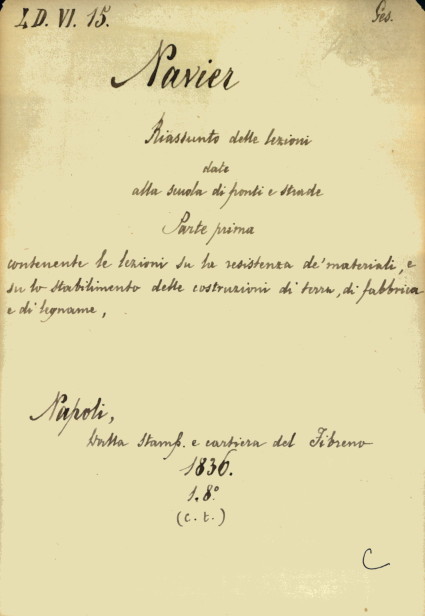 I. D. VI. 15.
Ges.
Navier
Riassunto delle lezioni
date
alla scuola di ponti e strade
Parte prima
contenente le lezioni su la resistenza de' materiali, e
su lo stabilimento delle costruzioni di terra, di fabbrica
e di legname,
Napoli,
Dalla Stamp. e cartiera del Fibreno
1836.
1. 8°
(c. t.)
C